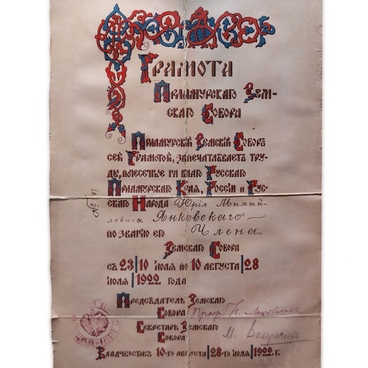 Грамота
Приамурскаго Зем-
скаго Собора
Приамурскій Земскій Соборъ
сей Грамотой, запечатлѣваетъ тру-
ды, понесенные на благо Русскаго
Приамурскаго Края, Россіи и Рус-
скаго Народа Юрія Михай-
ловича Янковскаго
по званію его Члена
Земскаго Собора
съ 23/10 іюля по 10 августа/28
іюля 1922 года
Предсѣдатель Земскаго
Собора Проф.
Секретарь Земскаго
Собора М.
Владивостокъ 10-го августа/28-го іюля/1922 г.